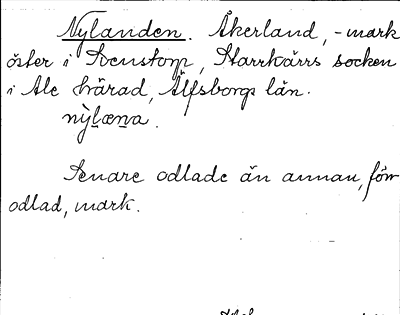 Nylanden. Åkerland, -mark
öster i Svenstorp, Starrkärrs socken
i Ale härad, Älfsborgs län.
nỳlæn̥a.
Senare odlade än annan, förr
odlad, mark.